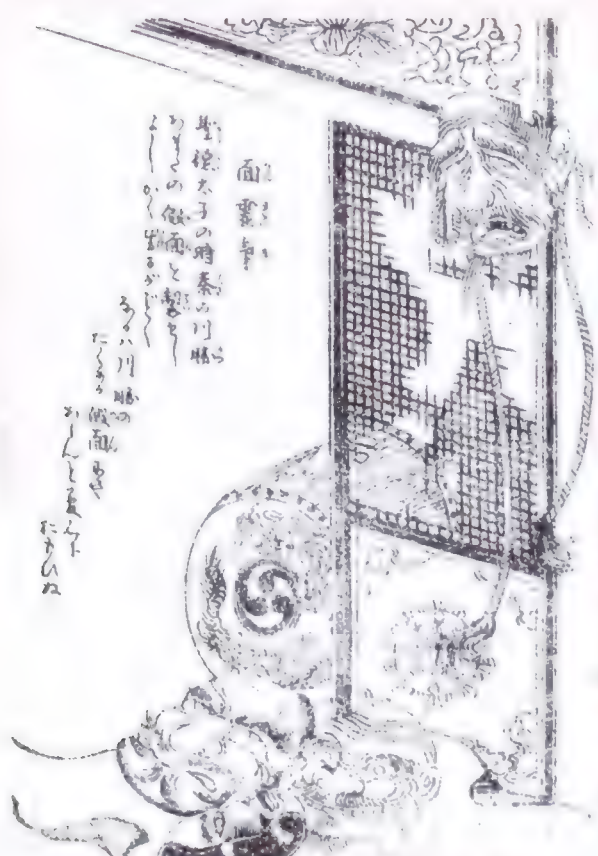 面霊気
聖徳太子の時秦の川勝
あまたの仮面を製せし
よしかく生るがごとく
なるハ川勝の
たくめる仮面にや
あらんと夢心に
おもひぬ